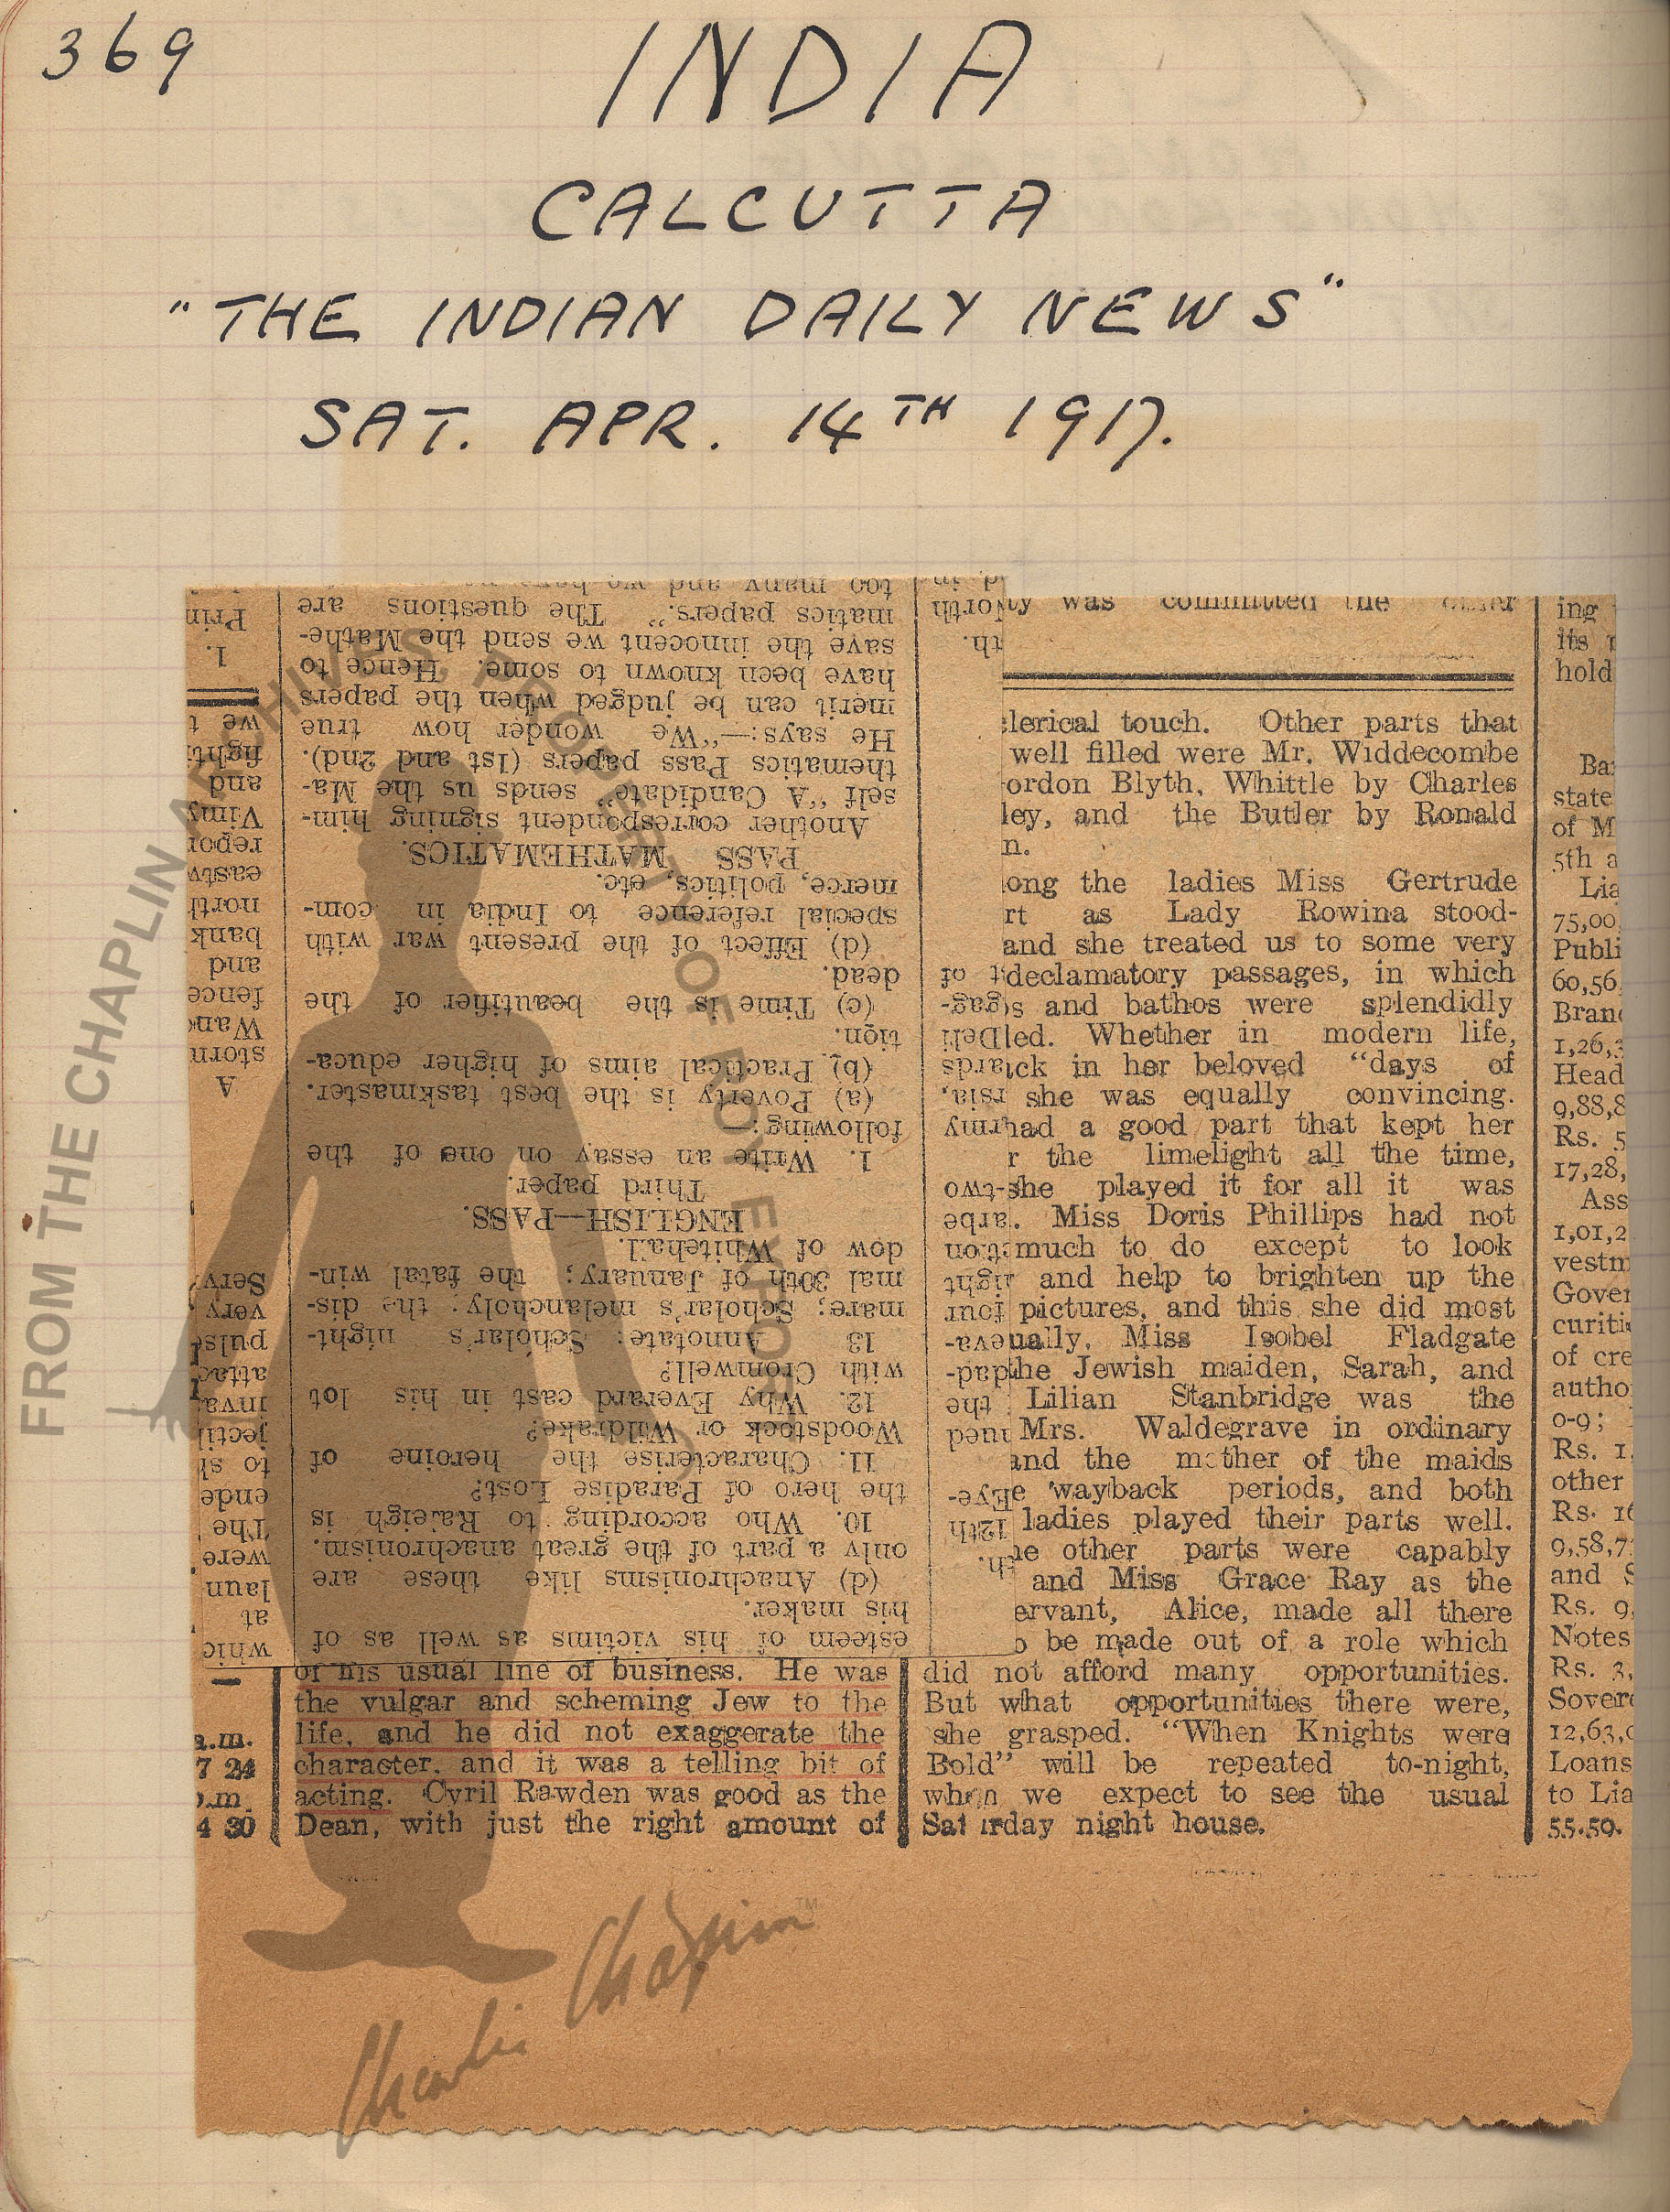 369
INDIA
CALCUTTA
"THE INDIAN DAILY NEWS"
SAT. APR. 14TH 1917.
too many and we
matics papers." The questions are
save the innocent we send the Mathe-
have been known to some. Hence to
merit can be judged when the papers
He says:—"We wonder how true
thematics Pass papers (1st and 2nd).
self "A Candidate" sends us the Ma-
Another correspondent signing him-
PASS MATHEMATICS.
merce, politics, etc.
special reference to India in com-
(d) Effect of the present war with
dead.
(c) Time is the beautifier of the
tion.
(b) Practical aims of higher educa-
(a) Poverty is the best taskmaster.
following:—
1. Write an essay on one of the
Third paper.
ENGLISH—PASS.
dow of Whitehall.
mal 30th of January; the fatal win-
mare; Scholar's melancholy; the dis-
13 Annotate: Scholar's night-
with Cromwell?
12. Why Everard cast in his lot
Woodstock or Wildrake?
11. Characterise the heroine of
the hero of Paradise Lost?
10. Who according to Raleigh is
only a part of the great anachronism.
(d) Anachronisms like these are
his maker.
esteem of his victims as well as of
of his usual line of business. He was
the vulgar and scheming Jew to the
life, and he did not exaggerate the
character, and it was a telling bit of
acting. Cyril Rawden was good as the
Dean, with just the right amount of
ty was committed the
lerical touch. Other parts that
well filled were Mr. Widdecombe
ordon Blyth, Whittle by Charles
ley, and the Butler by Ronald
n.
ong the ladies Miss Gertrude
rt as Lady Rowina stood-
and she treated us to some very
declamatory passages, in which
s and bathos were splendidly
led. Whether in modern life,
ck in her beloved "days of
she was equally convincing.
had a good part that kept her
r the limelight all the time,
she played it for all it was
. Miss Doris Phillips had not
much to do except to look
and help to brighten up the
pictures, and this she did most
ually, Miss Isobel Fladgate
the Jewish maiden, Sarah, and
Lilian Stanbridge was the
Mrs. Waldegrave in ordinary
and the mother of the maids
e wayback periods, and both
ladies played their parts well.
he other parts were capably
and Miss Grace Ray as the
ervant, Alice, made all there
o be made out of a role which
did not afford many opportunities.
But what opportunities there were,
she grasped. "When Knights were
Bold" will be repeated to-night,
when we expect to see the usual
Saturday night house.
ing
its
hold
Ba
state
of M
5th a
Lia
75,00
Publi
60,56
Bran
1,26,
Head
9,88,8
Rs. 5
17,28,
Ass
1,01,2
vestm
Gover
curiti
of cre
autho
0-9;
Rs. 1
other
Rs. 16
9,58,7
and S
Rs. 9
Notes
Rs. 3,
Sovere
12,63,0
Loans
to Lia
55.59.
a.m.
7 24
p.m.
4 30
FROM THE CHAPLIN ARCHIVES
Charlie Chaplin™